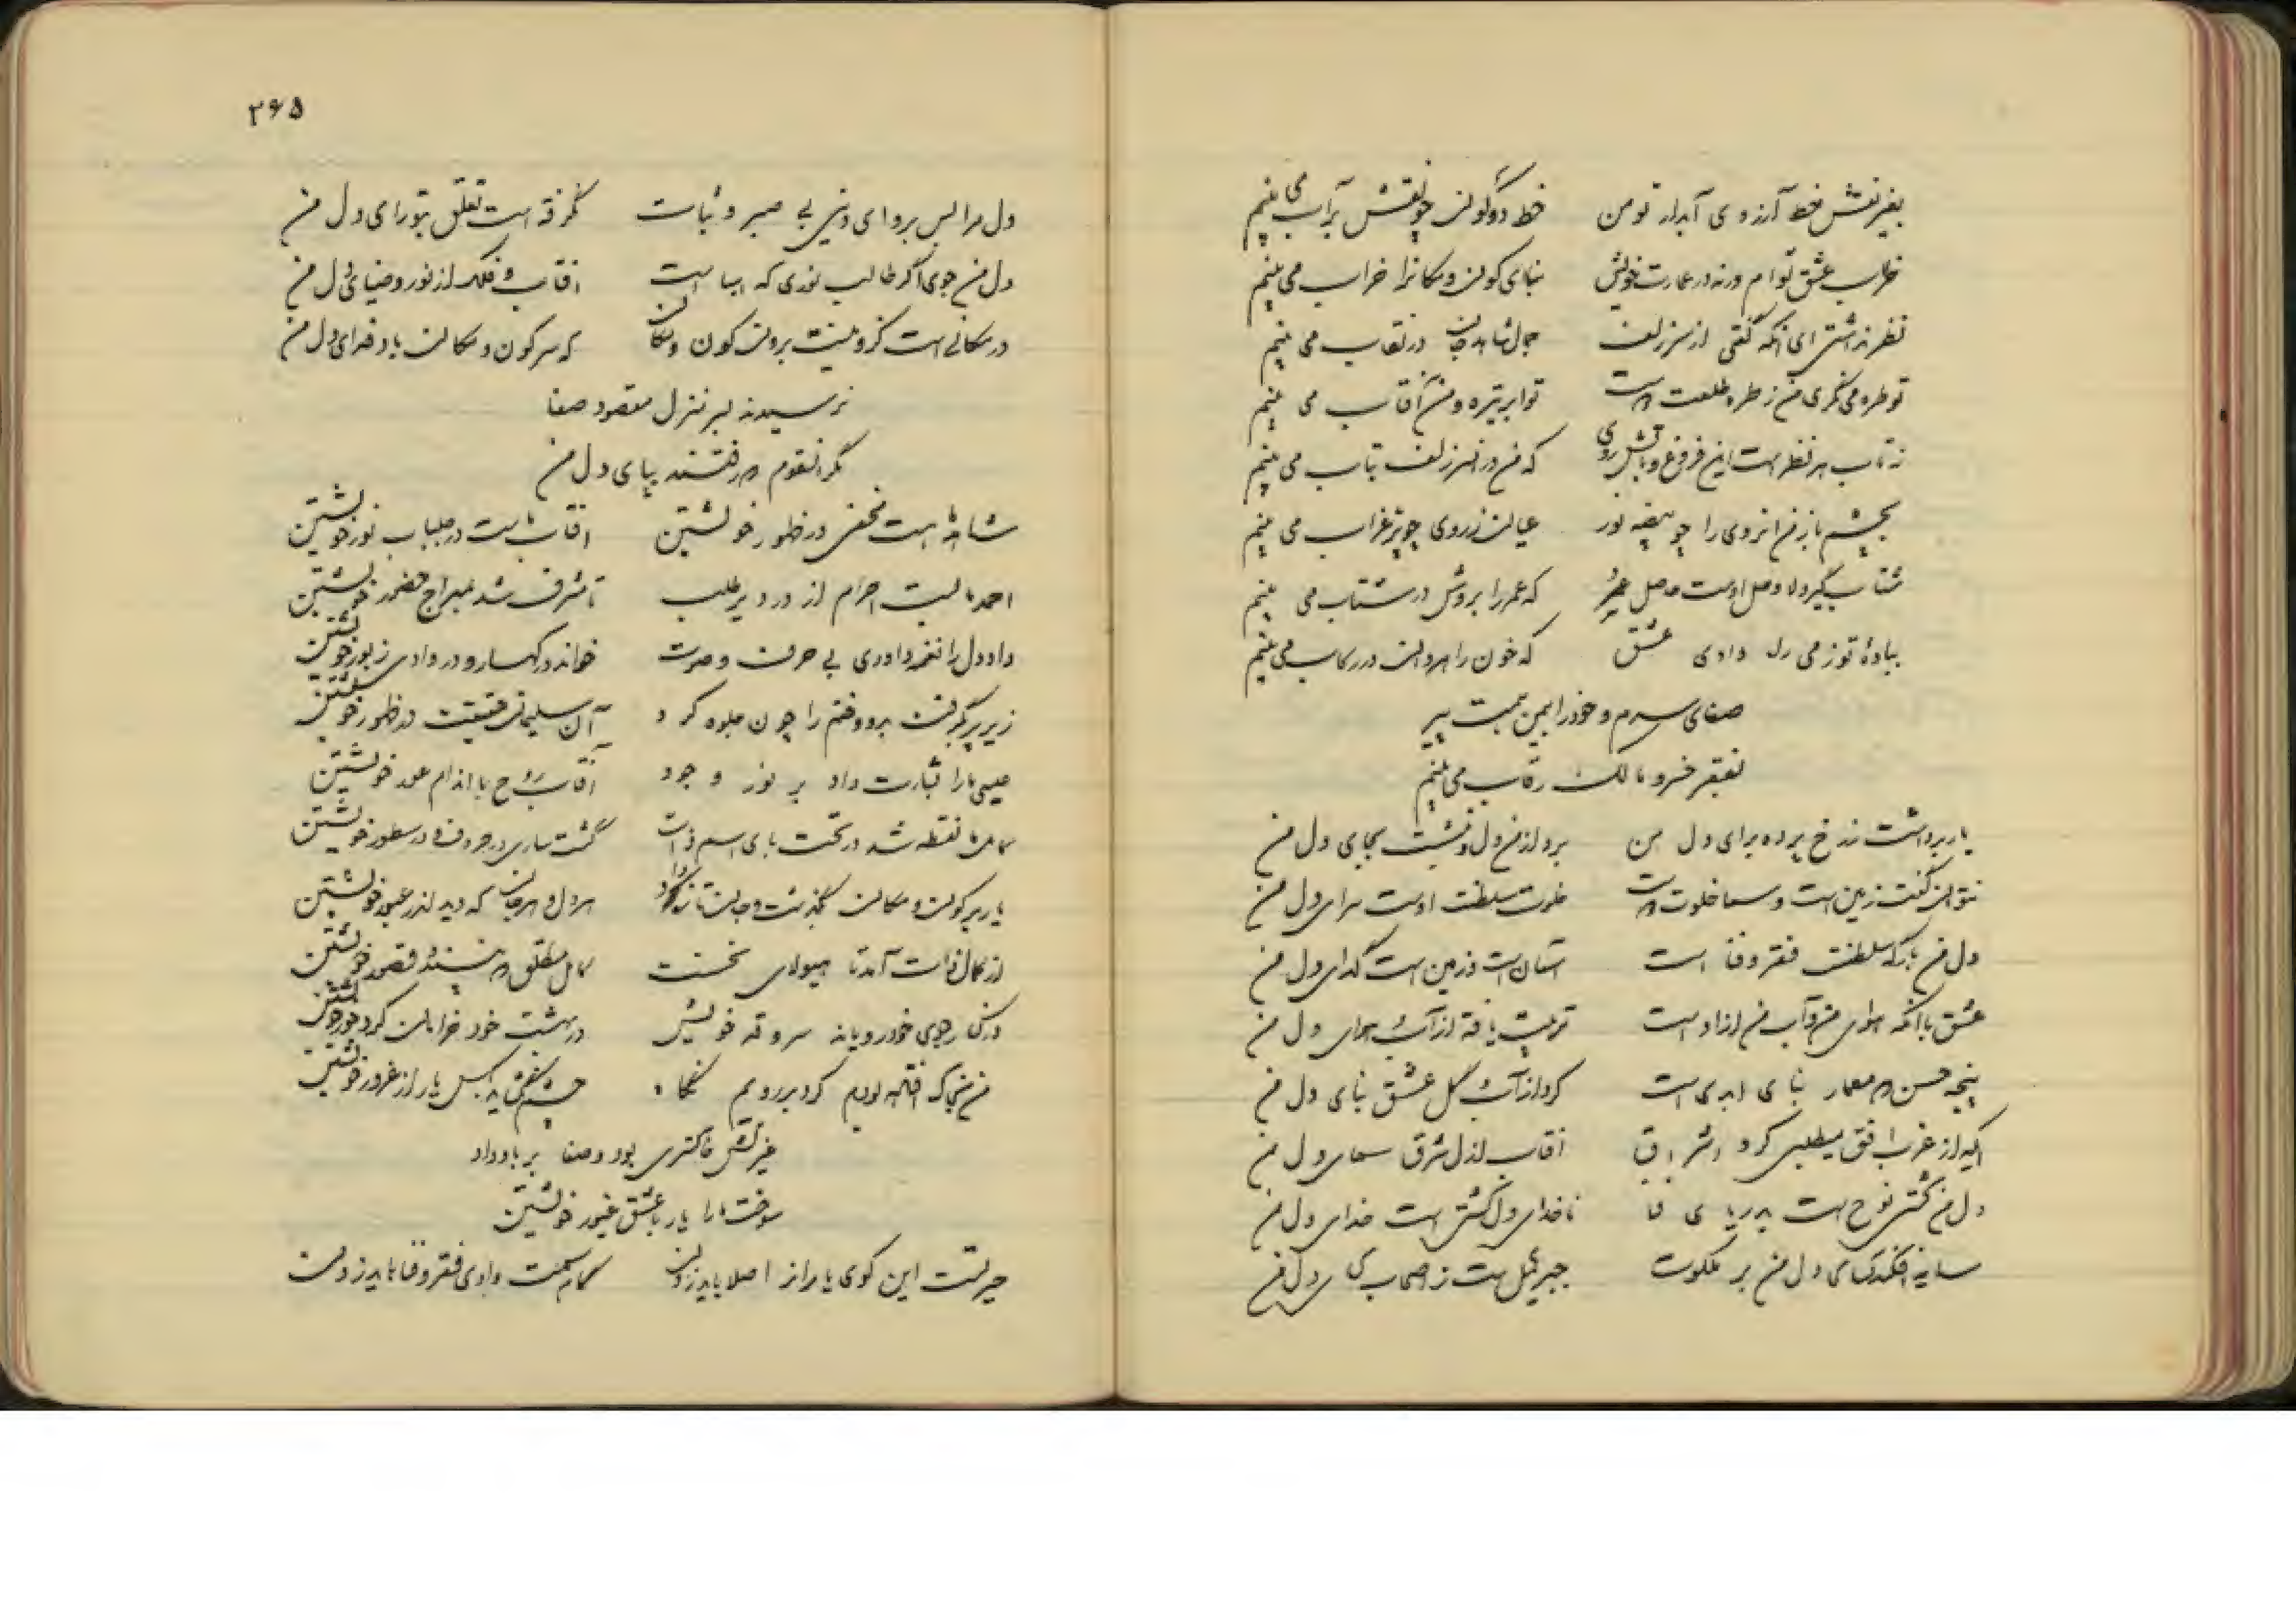 بغیر نقش خط آرزوی آبدار تو من خط دو کون چو نقش بر آب می بینم
خراب عشق توام ورنه در عمارت خویش بنای کون و مکانرا خراب می بینم
نظر نداشتی ای آنکه گفتی از سر زلف جمال شاهد جان در نقاب می بینم
تو طره می نگری من ز طره طلعت دوست تو ابر تیره و من آفتاب می بینم
ز تاب هر نظر است این فروغ و تابش روی که من در آن سر زلف بتاب می بینم
بچشم باز من آنروی را چو بیضه نور عیان ز روی چو پر غراب می بینم
شتاب گیر دلا وصل اوست حاصل عمر که عمر را بروش در شتاب می بینم
بباده توز می ران وادی عشق که خون راهروان در رکاب می بینم
صفای سرم و خود را بیمن همت پیر
بفقر خسرو مالک رقاب می بینم
یار برداشت ز رخ پرده برای دل من برد از من دل و بنشست بجای دل من
نتوان گفت زمین است و سما خلوت دوست خلوت سلطنت اوست سرای دل من
دل من بارگه سلطنت فقر و فنا است آسمان است و زمین است گدای دل من
عشق با آنکه هوای من و آب من ازاوست تربیت یافته از آب و هوای دل من
پنجه حسن که معمار بنای ابدی است کرد از آب و گل عشق بنای دل من
ایکه از غرب افق میطلبی کرد اشراق آفتاب ازل شرق سمای دل من
دل من کشتی نوح است بدریای فنا ناخدای دل کشتی است خدای دل من
سایه افکند کسای دل من بر ملکوت جبرئیل است ز اصحاب کسای دل من
۲۶۵
دل مرا بس بر و ای دین بی صبر و ثبات نگرفته است تعلق بتو رای دل من
دل من جوی اگر طالب نوری که اینجا است آفتاب فلک از نور و ضیای دل من
در مکانی است کزو نیست برون کون و مکان که سر کون و مکان باد فدای دل من
نرسیدند بسر منزل مقصود صفا
مگر آنقوم که رفتند بپای دل من
شاهد ما است مخفی در ظهور خویشتن آفتاب ماست در جلباب نور خویشتن
احمد ما بست احرام از در دیر طلب تا مشرف شد بمعراج حضور خویشتن
داود دل را نغمه داودی بی حرف و صوت خواند در کهسار و در وادی زبور خویشتن
زیر پر بگرفت مرد و فتم را چون جلوه کرد آن سلیمان حقیقت در ظهور خویشتن
عیسی ما را بشارت داد بر نور وجود آفتاب روح با اندام عود خویشتن
کامل ما نقطه شد در تحت بای اسم ذات گشت ساری در حروف و در سطور خویشتن
یار بر کون و مکان بگذشت و جان تازه داد هر دل و هر جان که دید اندر عبور خویشتن
از کمال ذات آمد تا هیولای نخست کامل مطلق که پسندد قصور خویشتن
در کنار جوی خود رویاند سرو قد خویش در بهشت خود خرامان کرد حور خویشتن
من بخاک افتاده بودم کرد بر رویم نگاه چشم نگشاید بکس یار از غرور خویشتن
غیرتش خاکستری بود و صفا بر باد داد
سوخت ما را یار با عشق غیور خویشتن
حیرتست این کوی یاران از اصلا باید زدن گام همت وادی فقر و فنا باید زدن